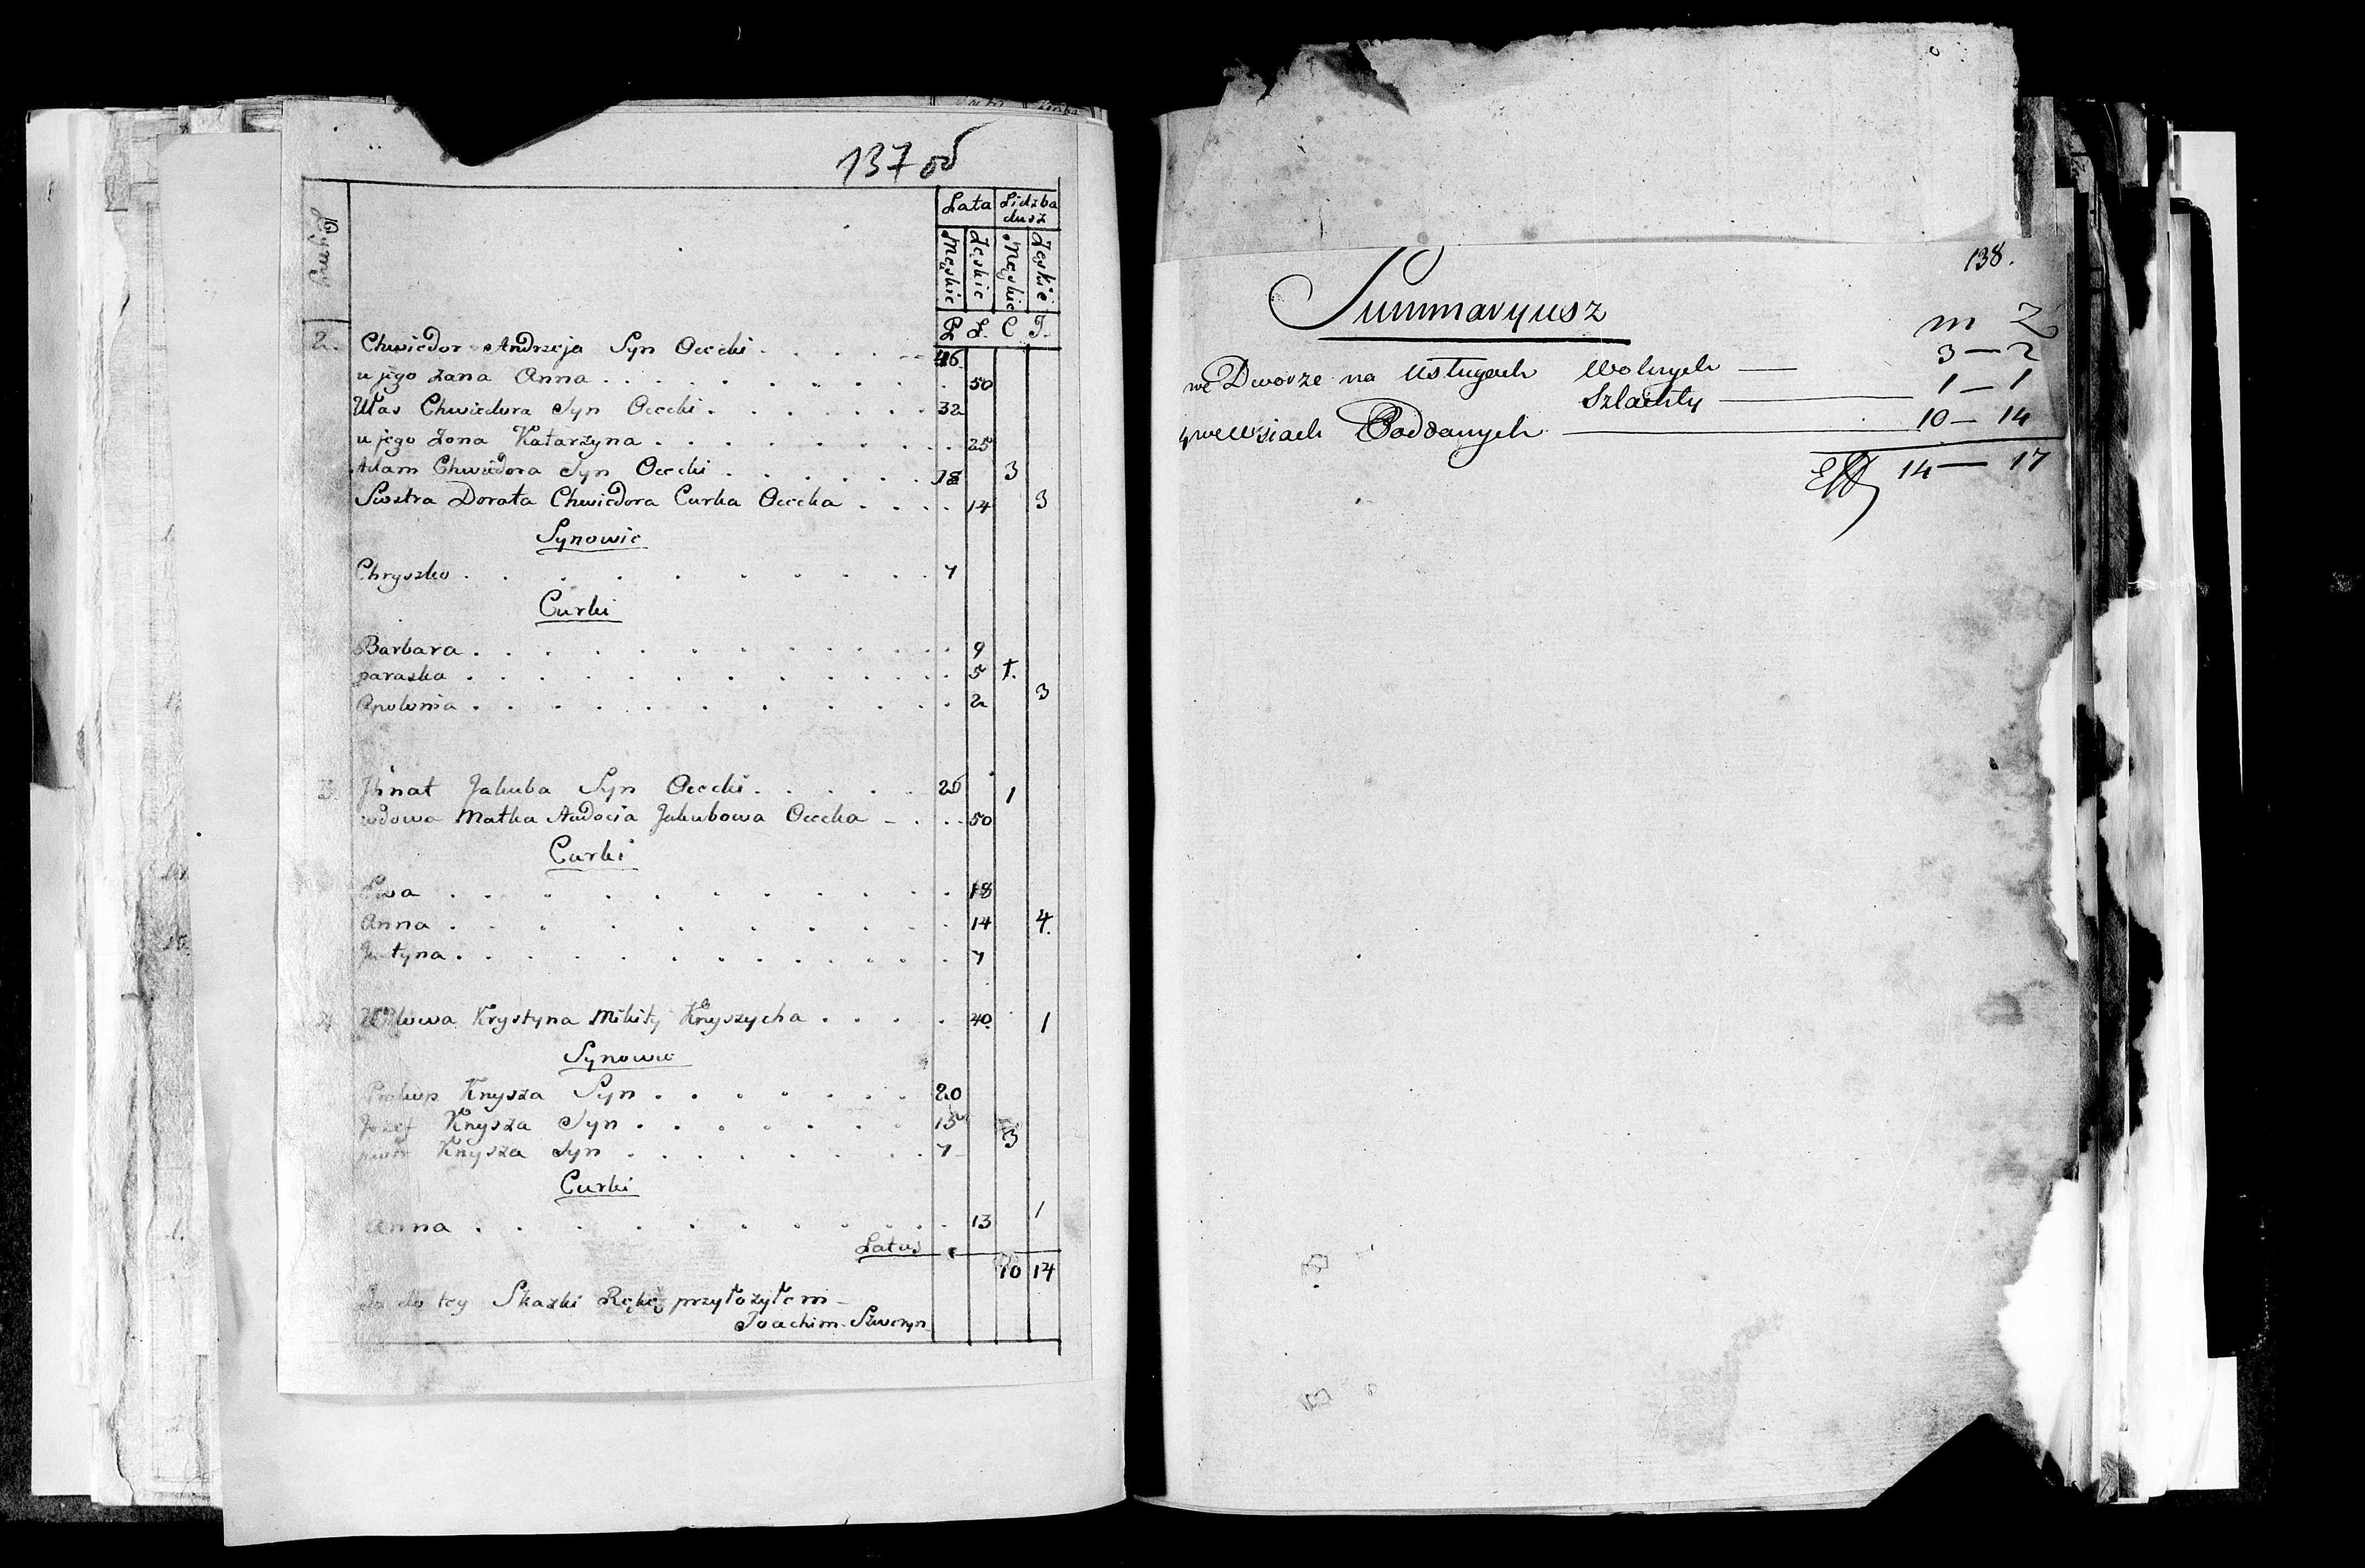 137 об
Lata Lidzba dusz
Męskie Żęskie Męskie Żęskie
2. Chwiedor Andrzeja Syn 46
u jego żana Anna 50
Chwiedora Syn 32
u jego żona Katarzyna 25
Adam Chwiedora Syn 18 3
Siostra Dorata Chwiedora Curka 14 3
Synowie
Chryszko 7
Curki
Barbara 9
paraska 5 1.
Apolonia 2 3
3. Jhnat Jakuba Syn 25 1
wdowa Matka Audocia Jakubowa 50
Curki
Ewa 18
Anna 14 4.
Justyna 7
4 Wdowa Krystyna Mikity Knyszycha 40 1
Synowie
Prokop Knysza Syn 20
Jozef Knysza Syn 15
piotr Knysza Syn 7 3
Curki
Anna 13 1
Latus 10 14
Ja do tey Skazki Rękę przyłożyłem
Joachim
138.
Summaryusz
m Ż
we Dworze na Usługach Wolnych — 3 — 2
Szlachty — 1 — 1
y we Wsiach Poddanych — 10 — 14
14 — 17